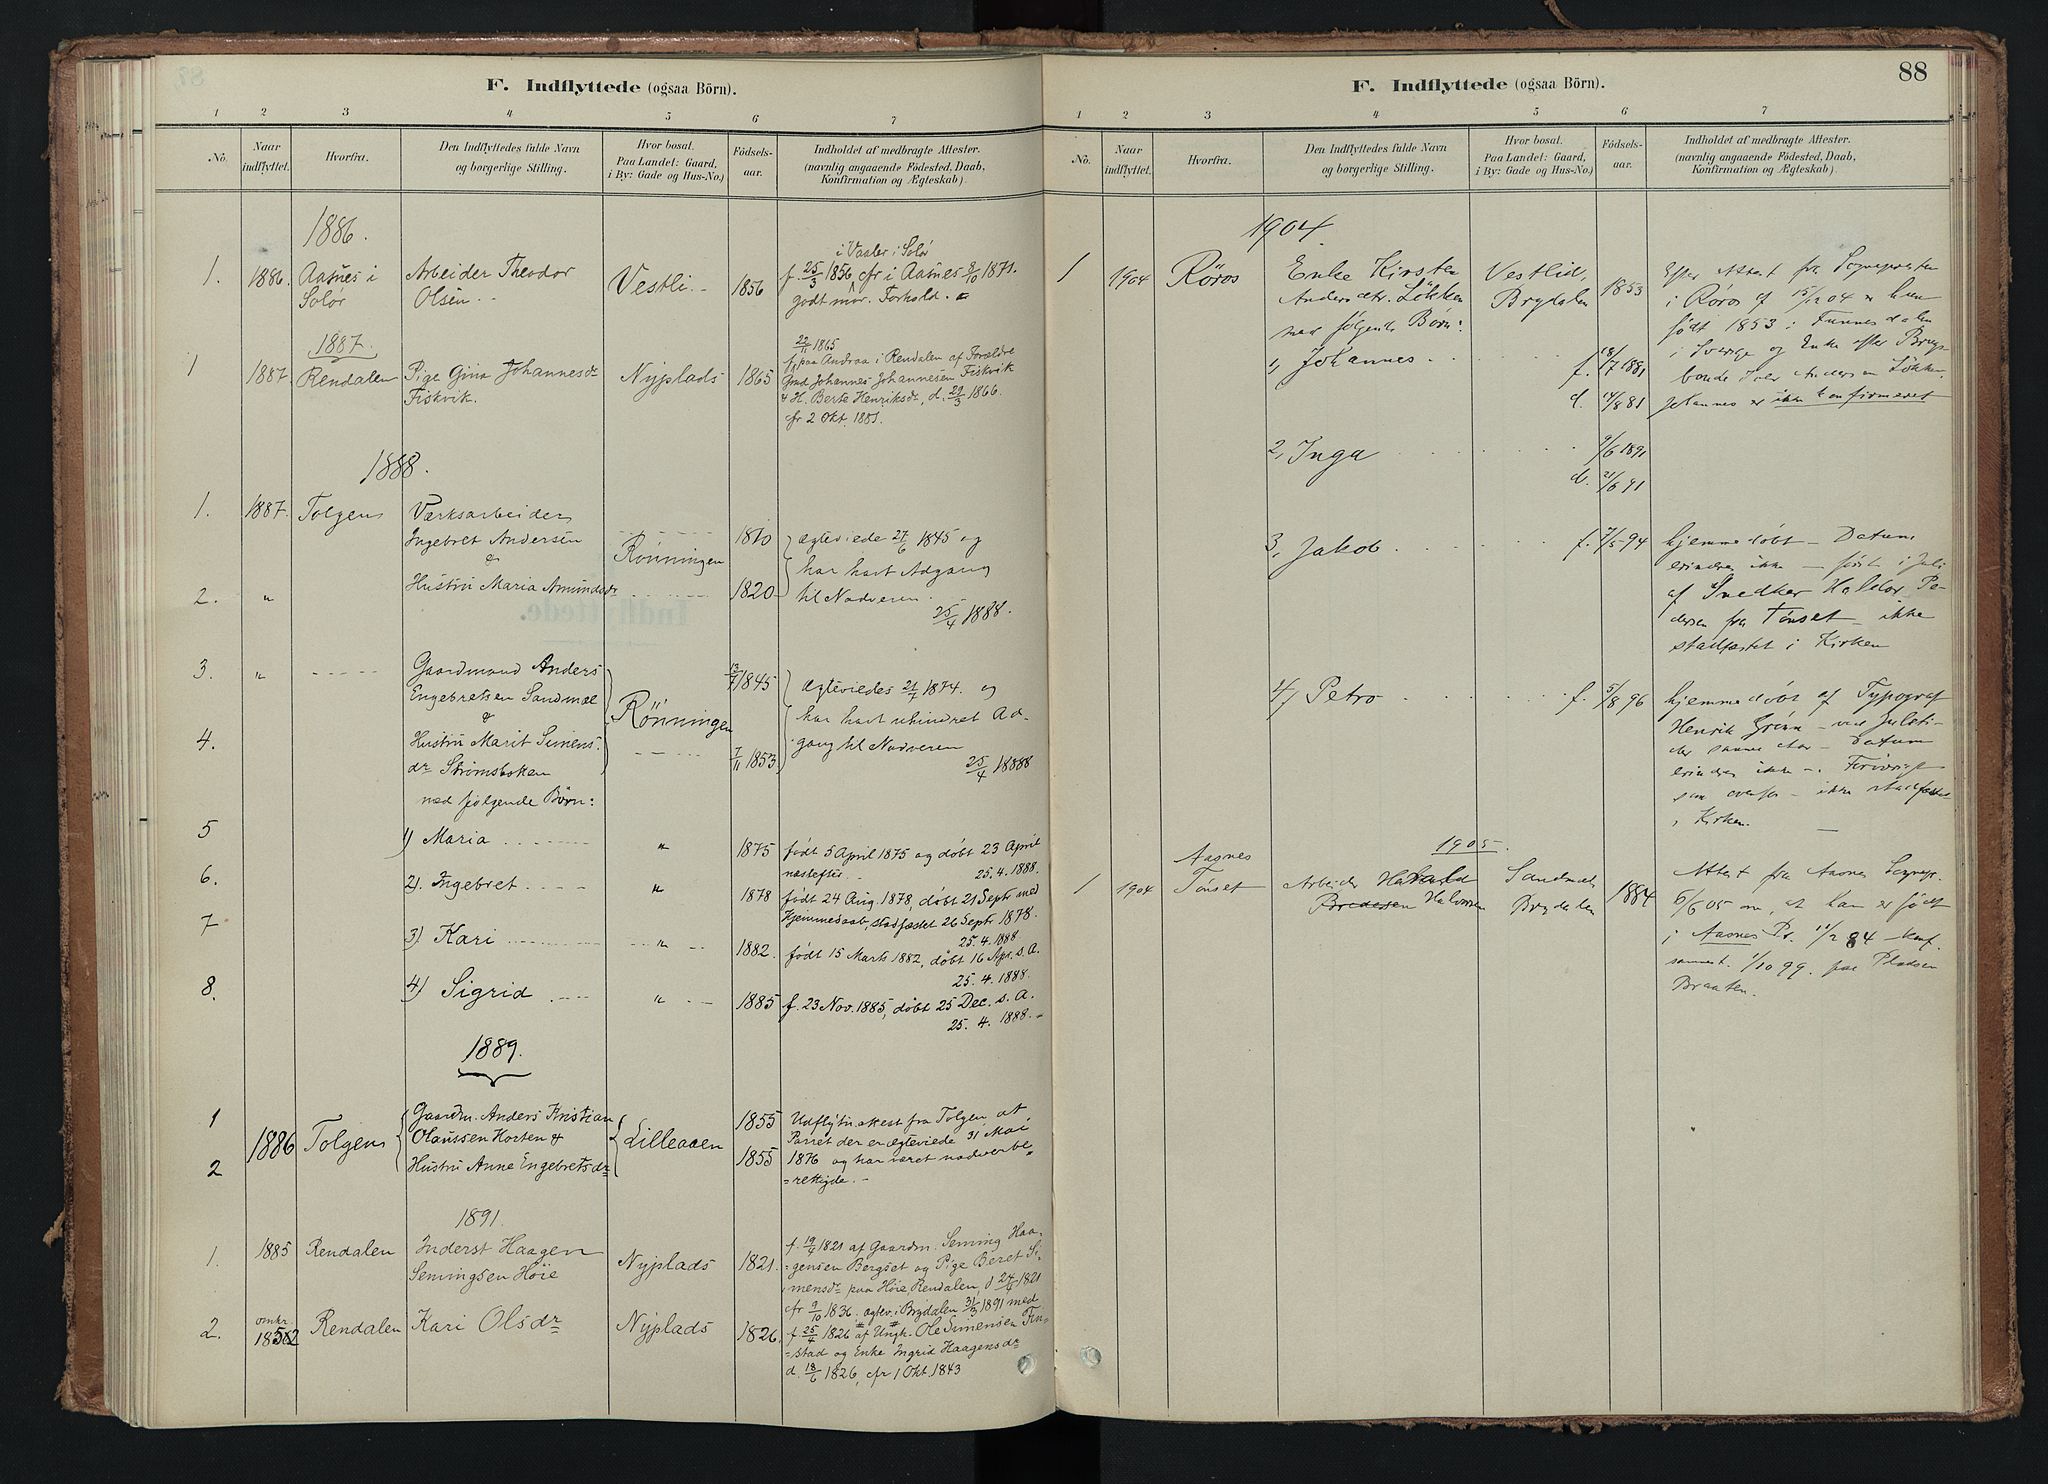 F. Indflyttede (ogsaa Börn).
1 2 3 4 5 6 7
No.
Naar indflyttet.
Hvorfra.
Den Indflyttedes fulde Navn
og borgerlige Stilling.
Hvor bosat.
Paa Landet: Gaard,
i By: Gade og Hus-No.
Födsels-
aar.
Indholdet af medbragte Attester.
(navnlig angaaende Födested, Daab,
Konfirmation og Ægteskab).
1886.
i Vaaler i Solør
1. 1886. Aasnes i Arbeider Theodor Vestli. 1856 f. 25/3 1856 cfr i Aasnes 8/10 1871.
Solør Olsen godt mor. Forhold.
1887.
22/11 1865
1 1887. Rendalen Pige Gina Johannesdr Nyplads 1865 f. paa Andraa i Rendalen af Forældre
Fiskvik. Gmd Johannes Johannesen Fiskvik
& H. Berte Henriksdr, d. 29/3 1866.
cfr 2 Okt. 1881.
1888.
1. 1887. Tolgen Værksarbeider
Ingebret Andersen Rønningen 1810 ægteviede 27/6 1845 og
& har havt Adgang
2. " Hustru Maria Amundsdr 1820 til Nadveren.
25/4 1888.
3. " Gaardmand Anders 13/7 1845 ægteviedes 21/7 1874. og
Engebretsen Sandmæl Rønningen har havt uhindret Ad-
& gang til Nadveren
4. Hustru Marit Simens- 7/11 1853 25/4 1888
dr Strømsbakken
med følgende Børn:
5 1) Maria " 1875 født 5 April 1875 og døbt 23 April
næstefter. 25.4.1888.
6. 2). Ingebret " 1878 født 24 Aug. 1878, døbt 21 Septr med
Hjemmedaab, stadfæstet 26 Septr. 1878.
7 3) Kari " 1882. 25.4.1888
født 15 Marts 1882, døbt 16 Apr. s. A.
25.4.1888.
8. 4) Sigrid " 1885 f. 23 Nov. 1885, døbt 25 Dec. s. A.
25.4.1888.
1889.
1 Gaardm. Anders Kristian 1855 Udflytn.attest fra Tolgen, at
1886 Tolgen Olaussen Horten & Lilleaaen Parret der er ægteviede 31 Mai
2 Hustru Anne Engebretsdr 1855 1876 og har været nadverbe-
rettigde.
1891.
1. 1885 Rendalen Inderst Haagen Nyplads 1821. f. 19/4 1821 af Gaardm. Seming Haa-
Semingsen Høie gensen Bergset og Pige Beret Si-
mensdr paa Høie Rendalen, d 24/4 1821
cfr 9/10 1836. ægtev. i Brydalen 31/3 1891 med
2. omkr. 1852 Rendalen Kari Olsdr Nyplads 1826. f. 25/4 1826 af Ungk. Ole Simensen Fin-
stad og Enke Ingrid Haagensdr
d. 18/6 1826, cfr 1 Okt. 1843
88
F. Indflyttede (ogsaa Börn).
1 2 3 4 5 6 7
No.
Naar indflyttet.
Hvorfra.
Den Indflyttedes fulde Navn
og borgerlige Stilling.
Hvor bosat.
Paa Landet: Gaard,
i By: Gade og Hus-No.)
Födsels-
aar.
Indholdet af medbragte Attester.
(navnlig angaaende Födested, Daab,
Konfirmation og Ægteskab).
1904.
1 1904 Röros Enke Kirsten Vestlid, 1853 Efter Attest fra Sognepresten
Andersdtr. Løkken Brydalen i Røros af 15/12 04 er hun
med følgende Børn: født 1853 i Funnesdalen
i Sverige og Enke efter Brugs-
1, Johannes f. 18/7 1881 bonde Iver Andersen Løkken.
d. 14/8 81 Johannes er ikke konfirmeret
2, Inga 9/6 1891
d. 21/6 91
3, Jakob f. 7/5-94 hjemmedøbt - Datum
erindres ikke - først i Juli
af Snedker Haldor Pe-
dersen fra Tønset - ikke
stadfæstet i Kirken
4, Petro f. 5/8 96 hjemmedøbt af Typograf
Henrik - ved Juleti-
der samme Aar - Datum
erindres ikke -. Forøvrigt
som ovenfor - ikke stadfæstet
i Kirken.
1905.
1 1904 Aasnes Tönset Arbeider Harald Sandmæl 1884 Attest fra Aasnes Sognep.
Halvorsen Brydalen 6/6 05 om, at han er født
i Aasnes Pr. 11/2 84 - konf.
sammest. 1/10 99. paa Pladsen
Braaten.
Indflyttede.